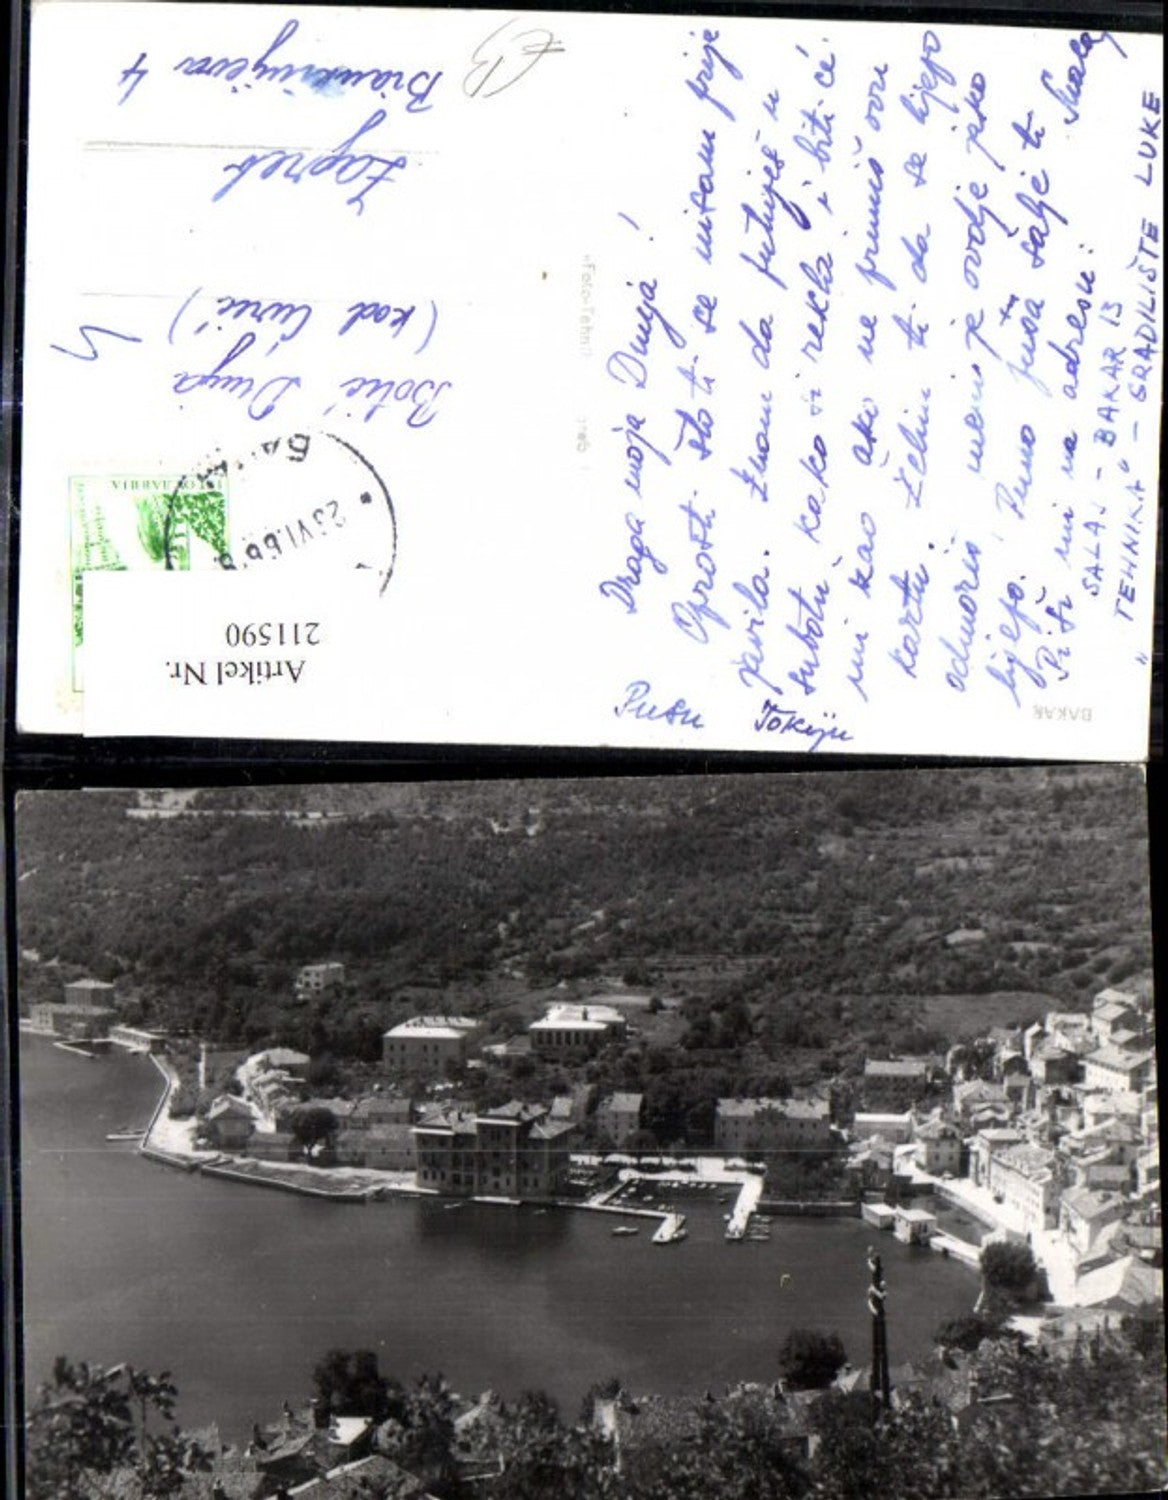 Draga moja Dunja!
Oprosti što ti se nisam prije
javila. Znam da putuješ u
subotu, kako si rekla i biti će
mi žao ako ne primiš ovu
kartu. Želim ti da se lijepo
odmoriš, meni je ovdje jako
lijepo. Puno pusa šalje ti
Piši mi na adresu:
SALAJ - BAKAR 13
"TEHNIKA" - GRADILIŠTE LUKE
Pusu Tokiju
Botić Dunja
(kod Curić)
Zagreb
4
JУГОСЛАВИЈА
23.VI.66
Artikel Nr.
211590
"Foto-Tehni
BAKAR